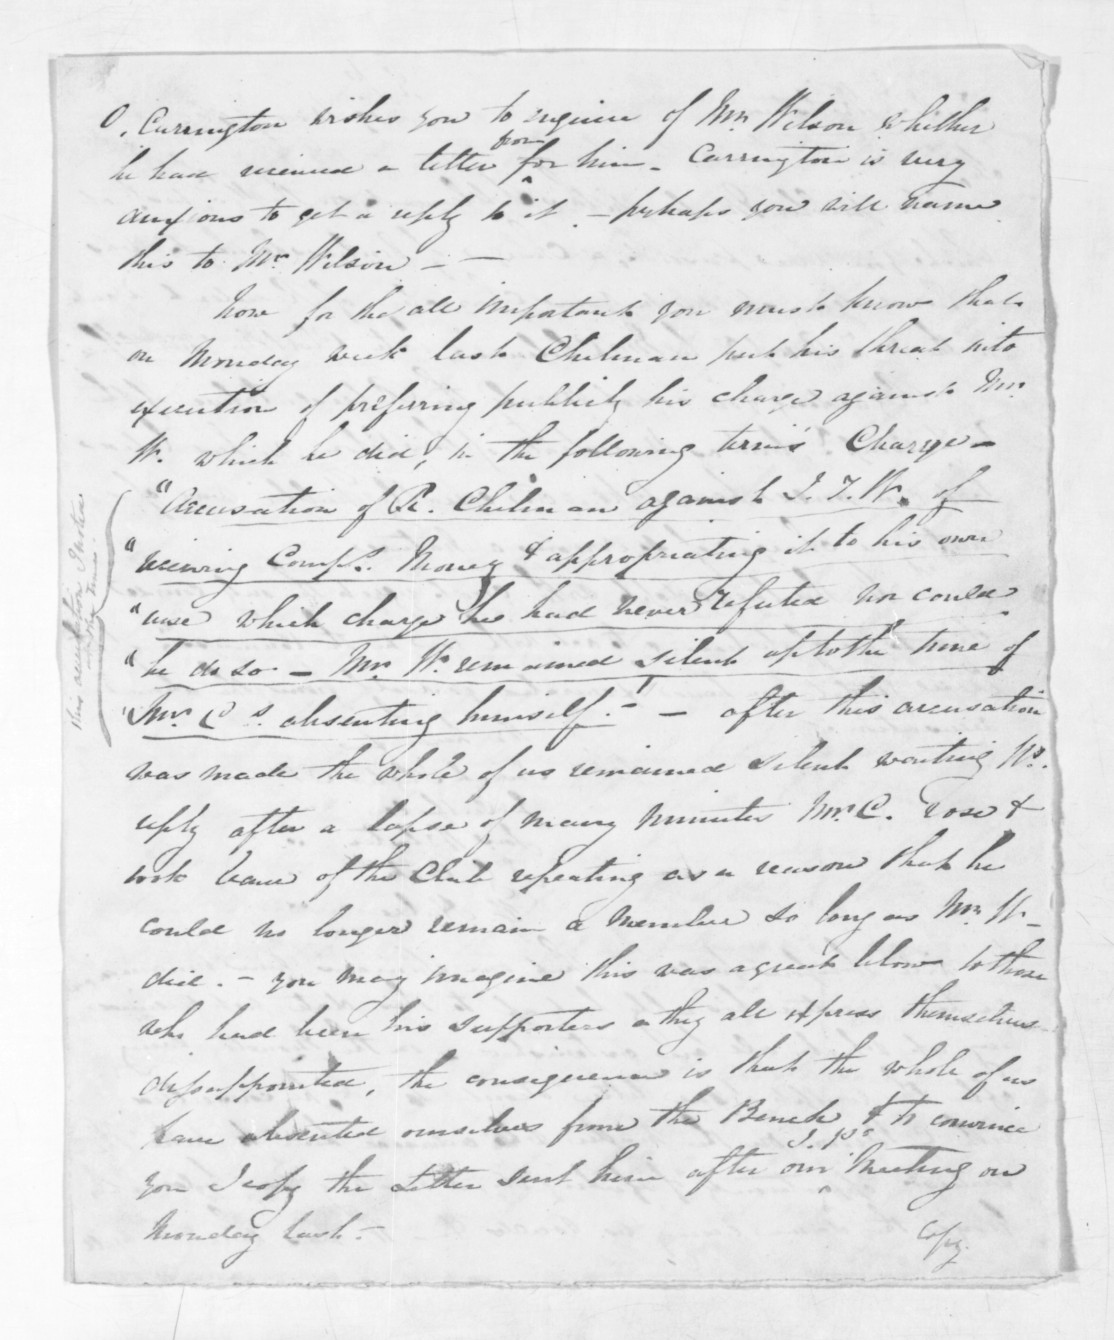 O. Carrington wishes you to inquire of Mr. Wilson whether
he had received a letter from for him - Carrington is very
anxious to get a reply to it - perhaps you will name
this to Mr. Wilson - -
Now for the all important you must know that
on Monday week last Chilman put his threat into
execution of preferring publickly his charge against Mr.
W. which he did, in the following terms Charge -
"Accusation of R. Chilman against I. T. W. of
"receiving Comps. Money & appropriating it to his own
"use which charge he had never refuted nor could
"he do so - Mr. W. remained silent up to the time of
"Mr. Cs. absenting himself." - after this accusation
was made the whole of us remained silent waiting Ws.
reply after a lapse of many minutes Mr. C. rose &
took leave of the Club repeating as a reason that he
could no longer remain a member so long as Mr. W -
did. - you may imagine this was a great blow to those
who had been his supporters & they all express themselves
disappointed, the consequence is that the whole of us
have absented ourselves from the Bench & to convince
you I copy the letter sent him after our J. Ps. Meeting on
Monday last. -
Copy.
This accusation